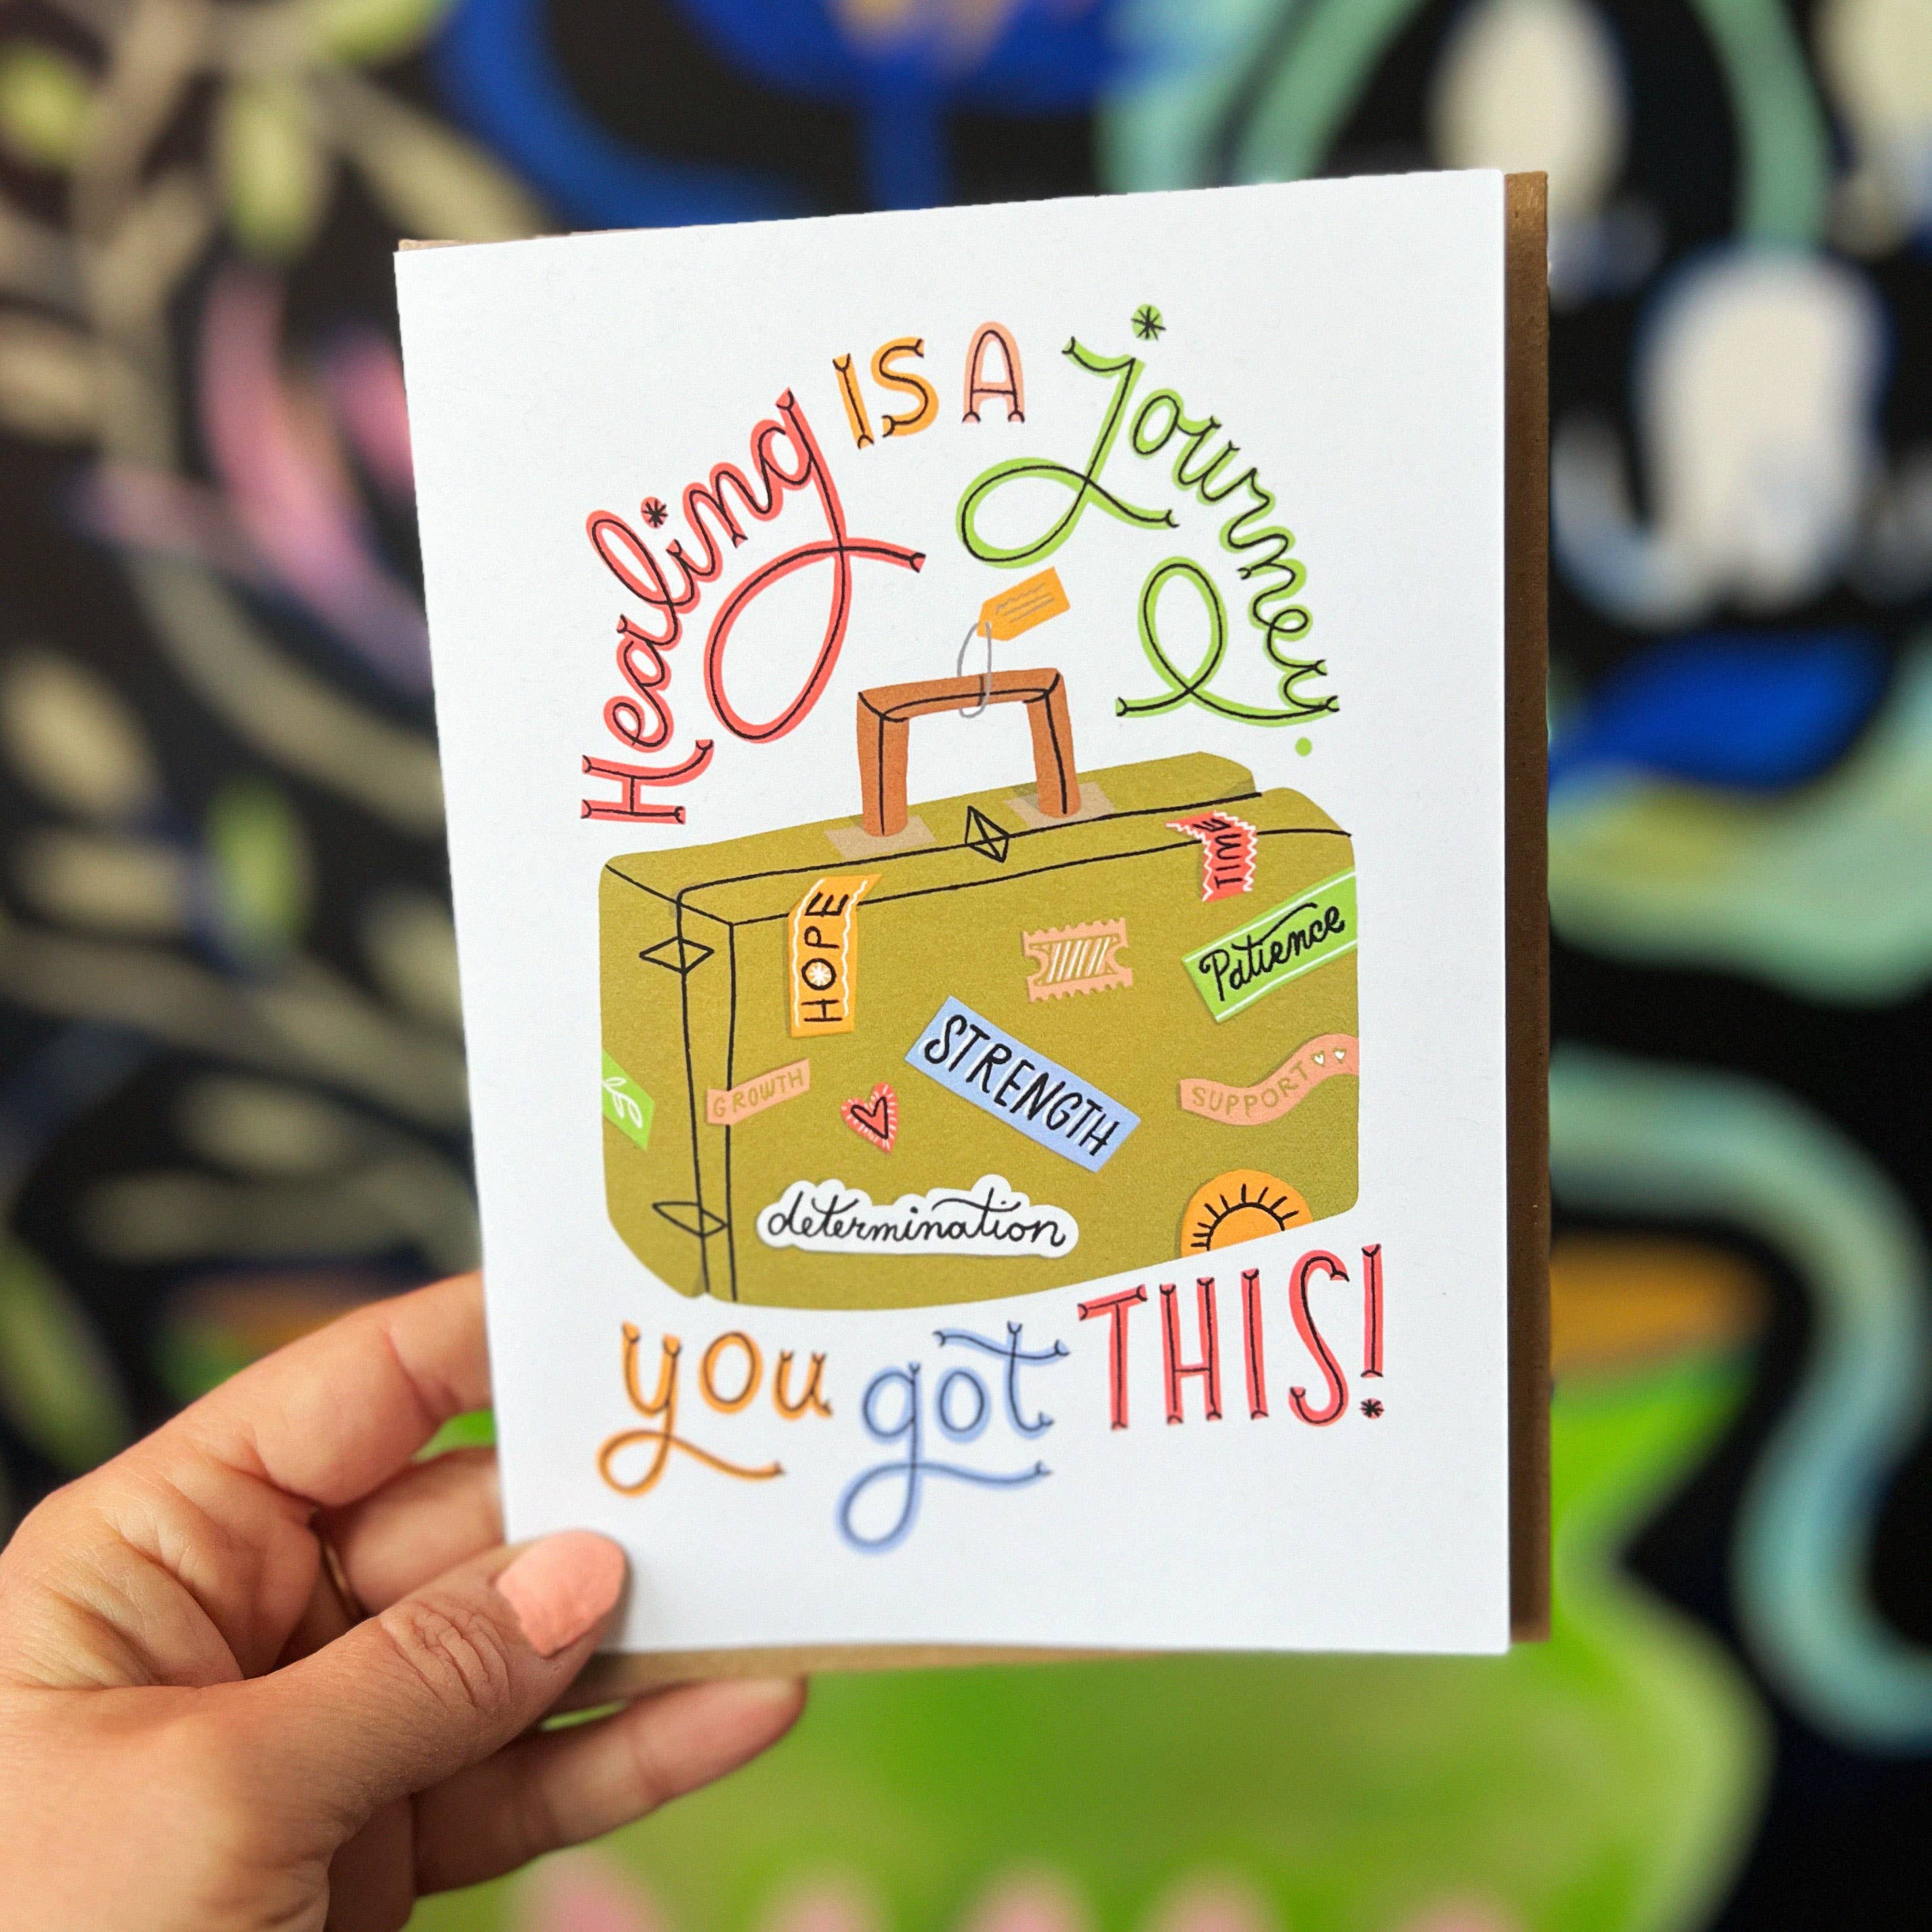 Healing IS A journey.
TIME
HOPE
Patience
STRENGTH
GROWTH
SUPPORT
determination
you got THIS!